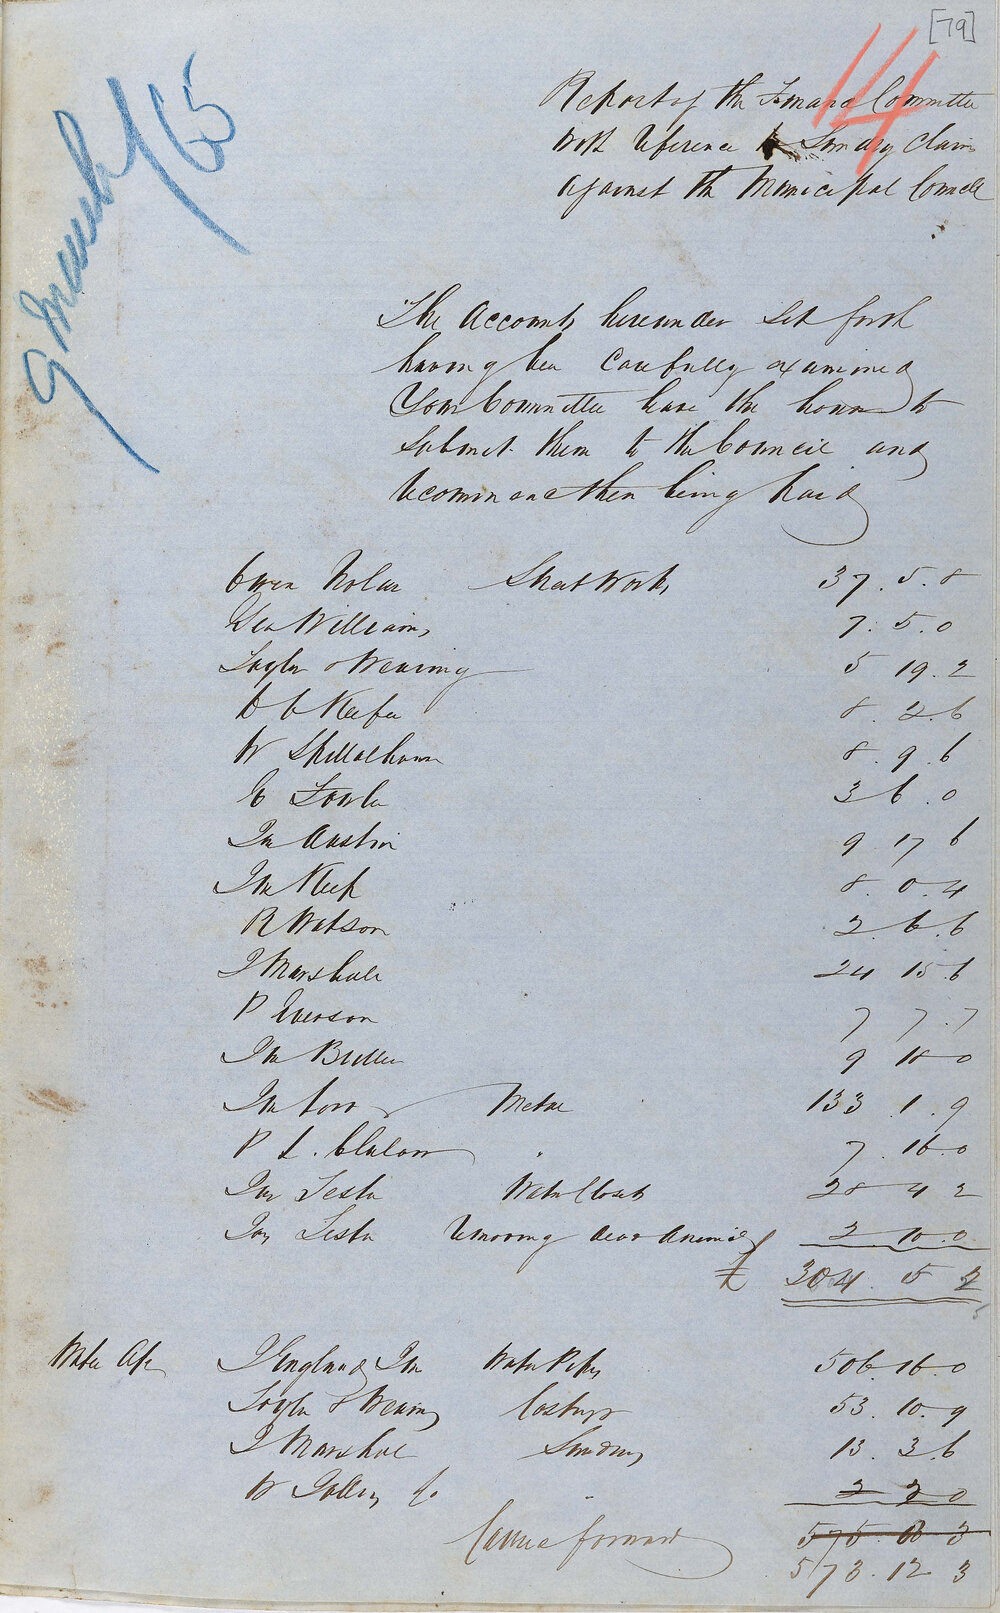 [79]
14
9 March/65
Report of the Finance Committee
with reference to Sundry Claims
against the Municipal Council
The Accounts hereunder set forth
having been carefully examined
Your Committee have the honor to
submit them to the Council and
recommend them being paid
Owen Nolan Street Works 37. 5. 8
Geo Williams 7. 5. 0
Taylor & Wearing 5 19. 2
D O Keefe 8. 2. 6
W Skillalhorn 8. 9. 6
E Fowler 3 6. 0
Jas Austin 9 17 6
Jas Keep 8. 0. 4
R Watson 2. 6. 6
J Marshall 24 15. 6
P Everson 7 7. 7
Jas Butler 9 18 0
Jas Carr Metal 133. 1. 9
P L. Clulow " 7. 16. 0
Jas Lester Water Closets 28 4 2
Jas Lester Removing dead Animals 2 10. 0
£ 304. 5 2
Water A/c J England Jas Water Pipes 506. 16. 0
Taylor & Wearing Castings 53. 10. 9
J Marshall Sundries 13. 3. 6
W & Co 2 2 0
575. 3
Carried forward
573. 12 3